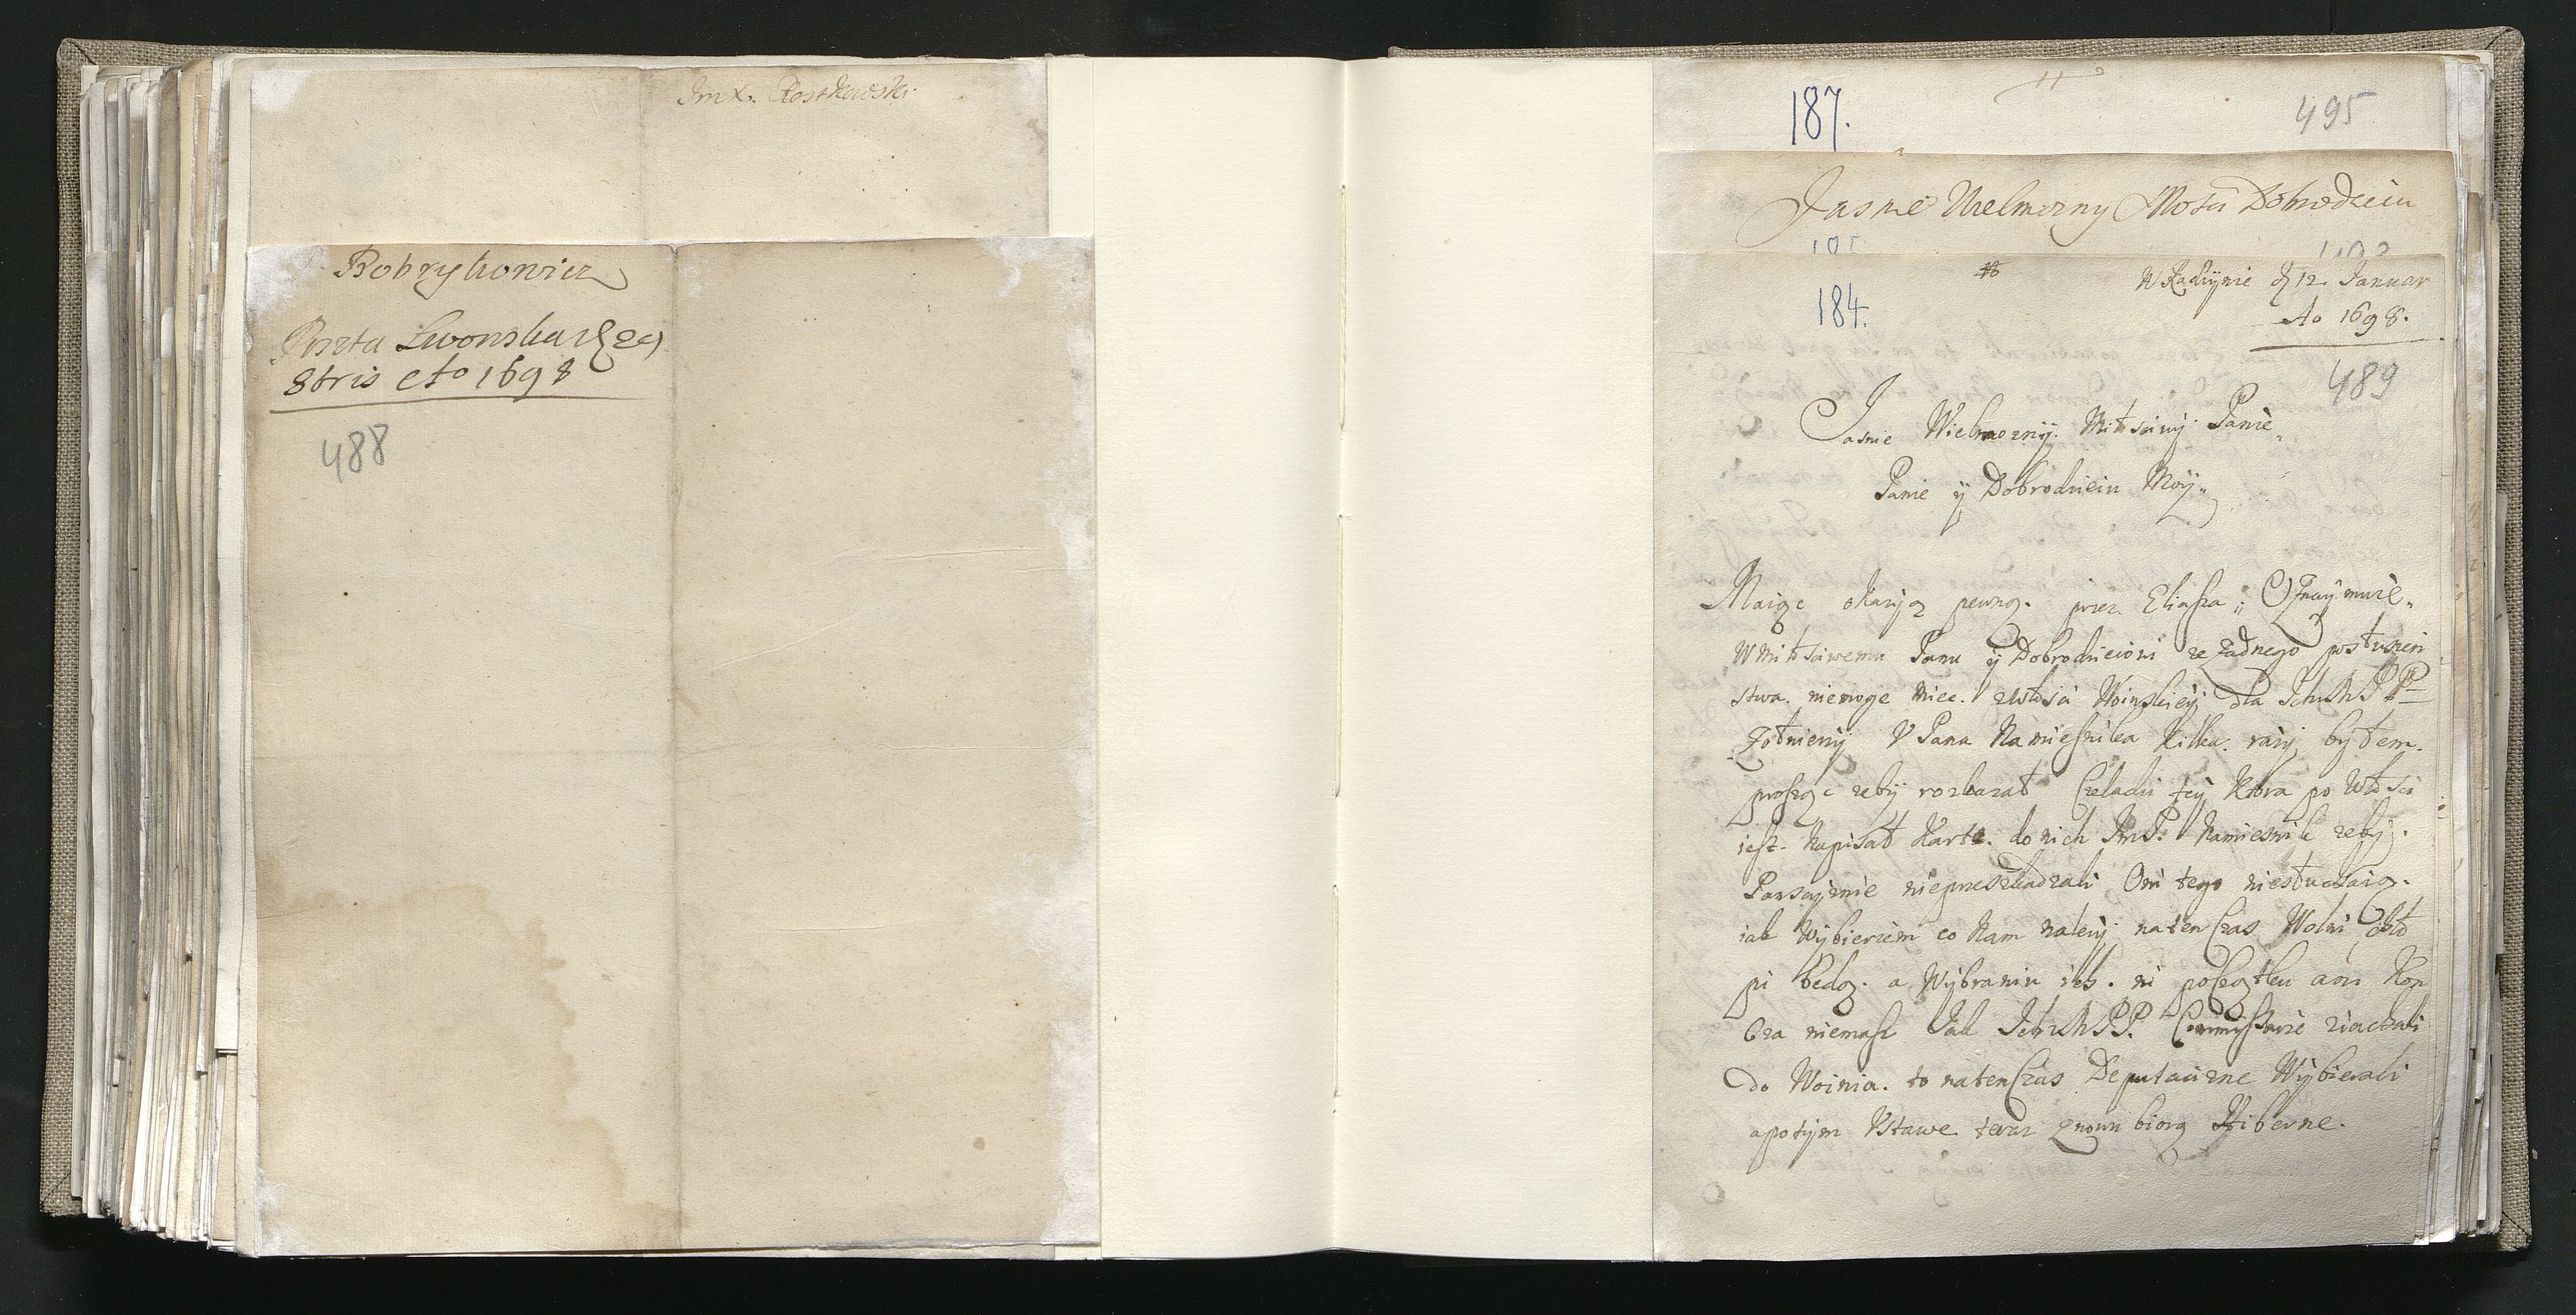 ImX. Roszkowski
Bobrykowicz
Poszta Lwowska d 20
8bris Ao 1698
488
187.
495
Jasnie Wielmozny Mosci Dobrodzieiu
184.
W Radzynie d 12. Januar
Ao 1698.
489
Jasnie Wielmozny. Miłosciwy Panie
Panie y Dobrodzieiu Moy
Maiąc okazyą pewną. przez Eliasza; Oznaymuię
WMiłosciwemu Panu y Dobrodzieiowi ze zadnego posłuszen
stwa. niemoge miec. zwłosci Woinskiey dla IchMPP
Zołnierzy V Pana Namiesnika Kilka. razy byłem.
prosząc zeby rozkazał Czeladzi tey Ktora po Włosci
iest. Napisał Karte. do nich ImP. Namiesnik zeby.
niepreszkadzali Oni tego niesłuchaią.
iak Wybierzem co Nam nalezy naten Czas Wolni Chło
pi będą. a Wybraniu ich. ni początku ani Kon
ca niemasz Jak IchMPP. Commissarze ziachali
do Woinia. to natenczas Deputacizne Wybierali
apotym Vstawe teraz znowu biorą Hiberne.